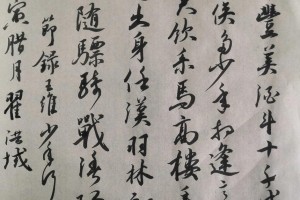 豐美酒斗十千
俠多少年相逢
飲系馬高樓垂
出身仕漢羽林郎
随驃騎戰漁
節錄王維少年行
寅腊月翟洪